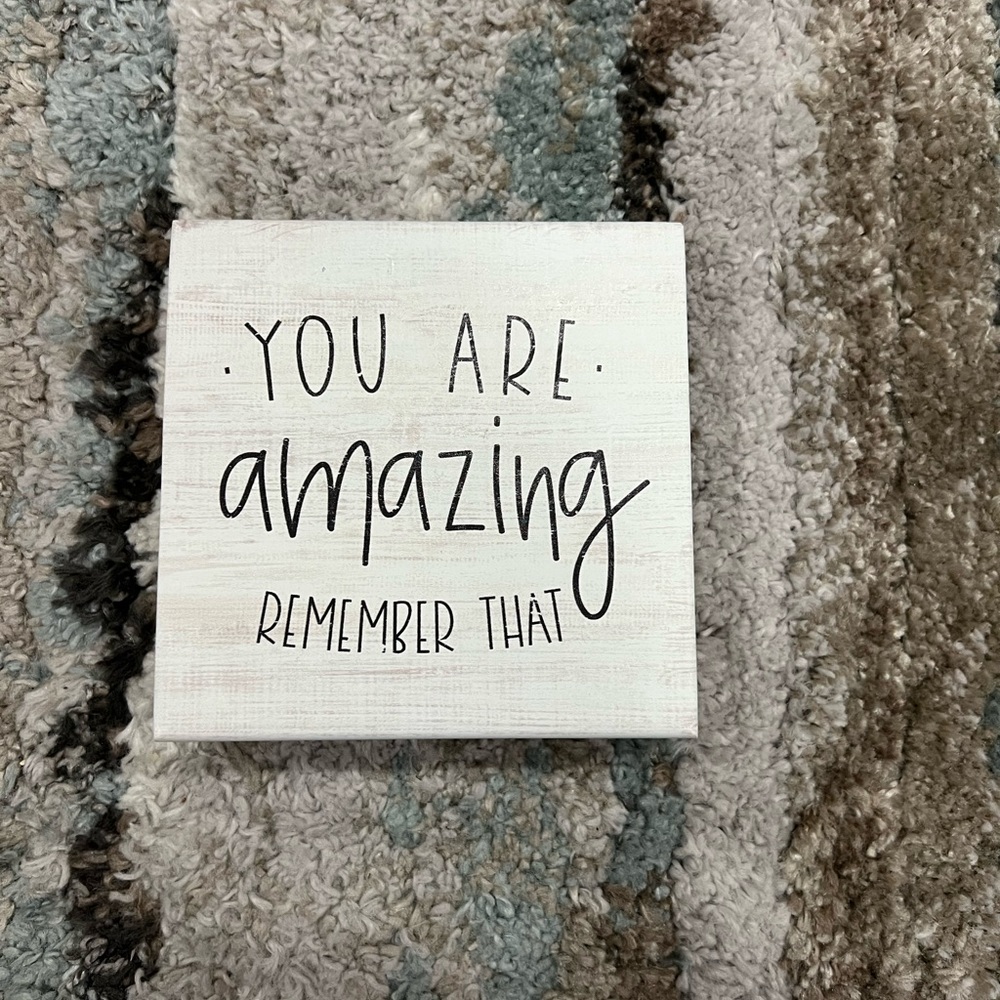 ·YOU ARE·
amazing
REMEMBER THAT